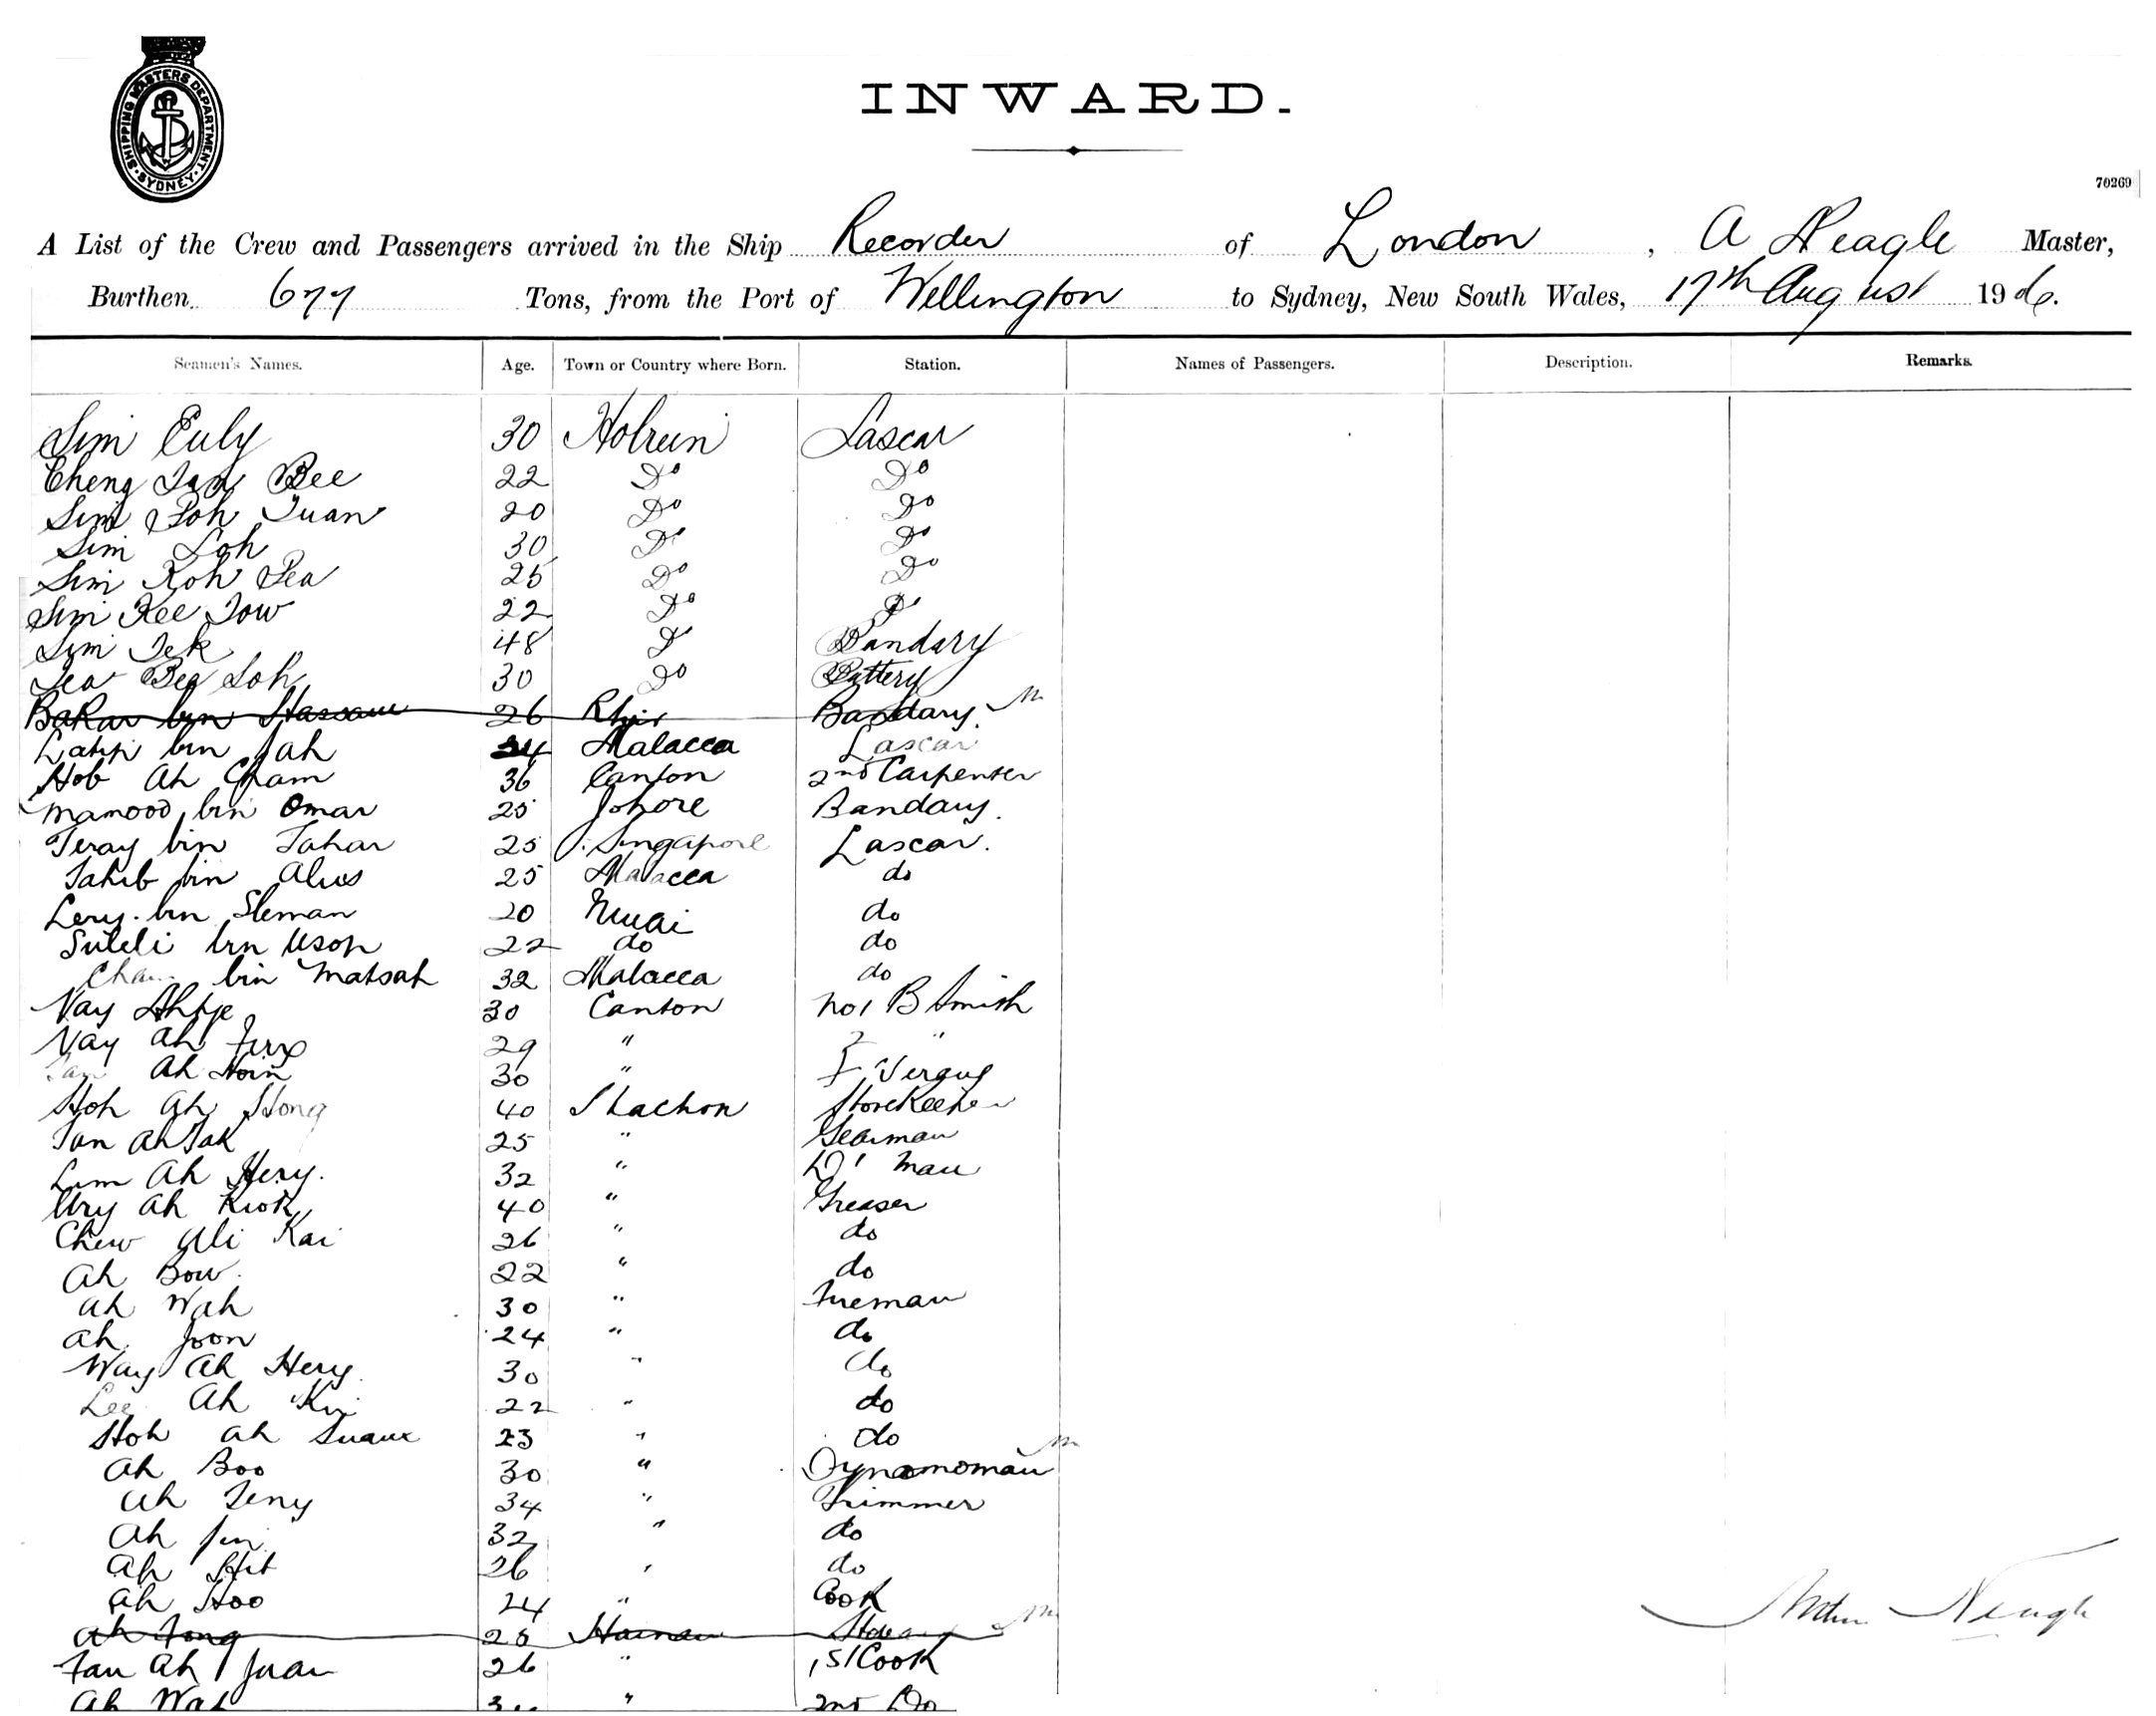 SHIPPING MASTERS DEPARTMENT. SYDNEY.
INWARD.
70269
A List of the Crew and Passengers arrived in the Ship Recorder of London, A Neagle Master,
Burthen 677 Tons, from the Port of Wellington to Sydney, New South Wales, 17th August 1906.
Seamen's Names. Age. Town or Country where Born. Station. Names of Passengers. Description. Remarks.
Sim 30 Lascar
Cheng Bee 22 Do Do
Sim Poh Tuan 20 Do Do
Sim Loh 30 Do Do
Sim Koh Sea 25 Do Do
Sim Kee Tow 22 Do Do
Sim Tek 48 Do Bandary
Tea Bea Loh 30 Do
Bakar bin Hassan 26 Bandary
Latip bin Jah 24 Malacca Lascar
Hob Ah Cham 36 Canton 2nd Carpenter
Mamood bin Omar 25 Johore Bandary.
Teray bin Tahar 25 Singapore Lascar.
Sahib bin 25 Malacca do
Lery bin Sleman 20 do
Suleli bin Usop 22 do do
bin Matsah 32 Malacca do
Vay 30 Canton No 1 B Smith
Vay Ah 29 " 2 "
Ah 30 "
Hoh Ah Hong 40 Storekeeper
Tan Ah Tak 25 "
Lim Ah Hery. 32 " Man
Ah Kiok 40 " Greaser
Chew Ali Kai 26 " do
Ah Bow. 22 " do
Ah Wah 30 " Fireman
Ah Joon 24 " do
Way Ah Hery 30 " do
Lee Ah Kii 22 " do
Hoh Ah Suaue 23 " do
Ah Boo 30 " Dynamoman
Ah Teny 34 " Trimmer
Ah Jin 32 " do
Ah Hit 26 " do
Ah Hoo 24 " Cook
Ah Tong 25 Hainan
Neagle
Tan Ah Juan 26 " 1st Cook
Ah Wah " 2nd Do